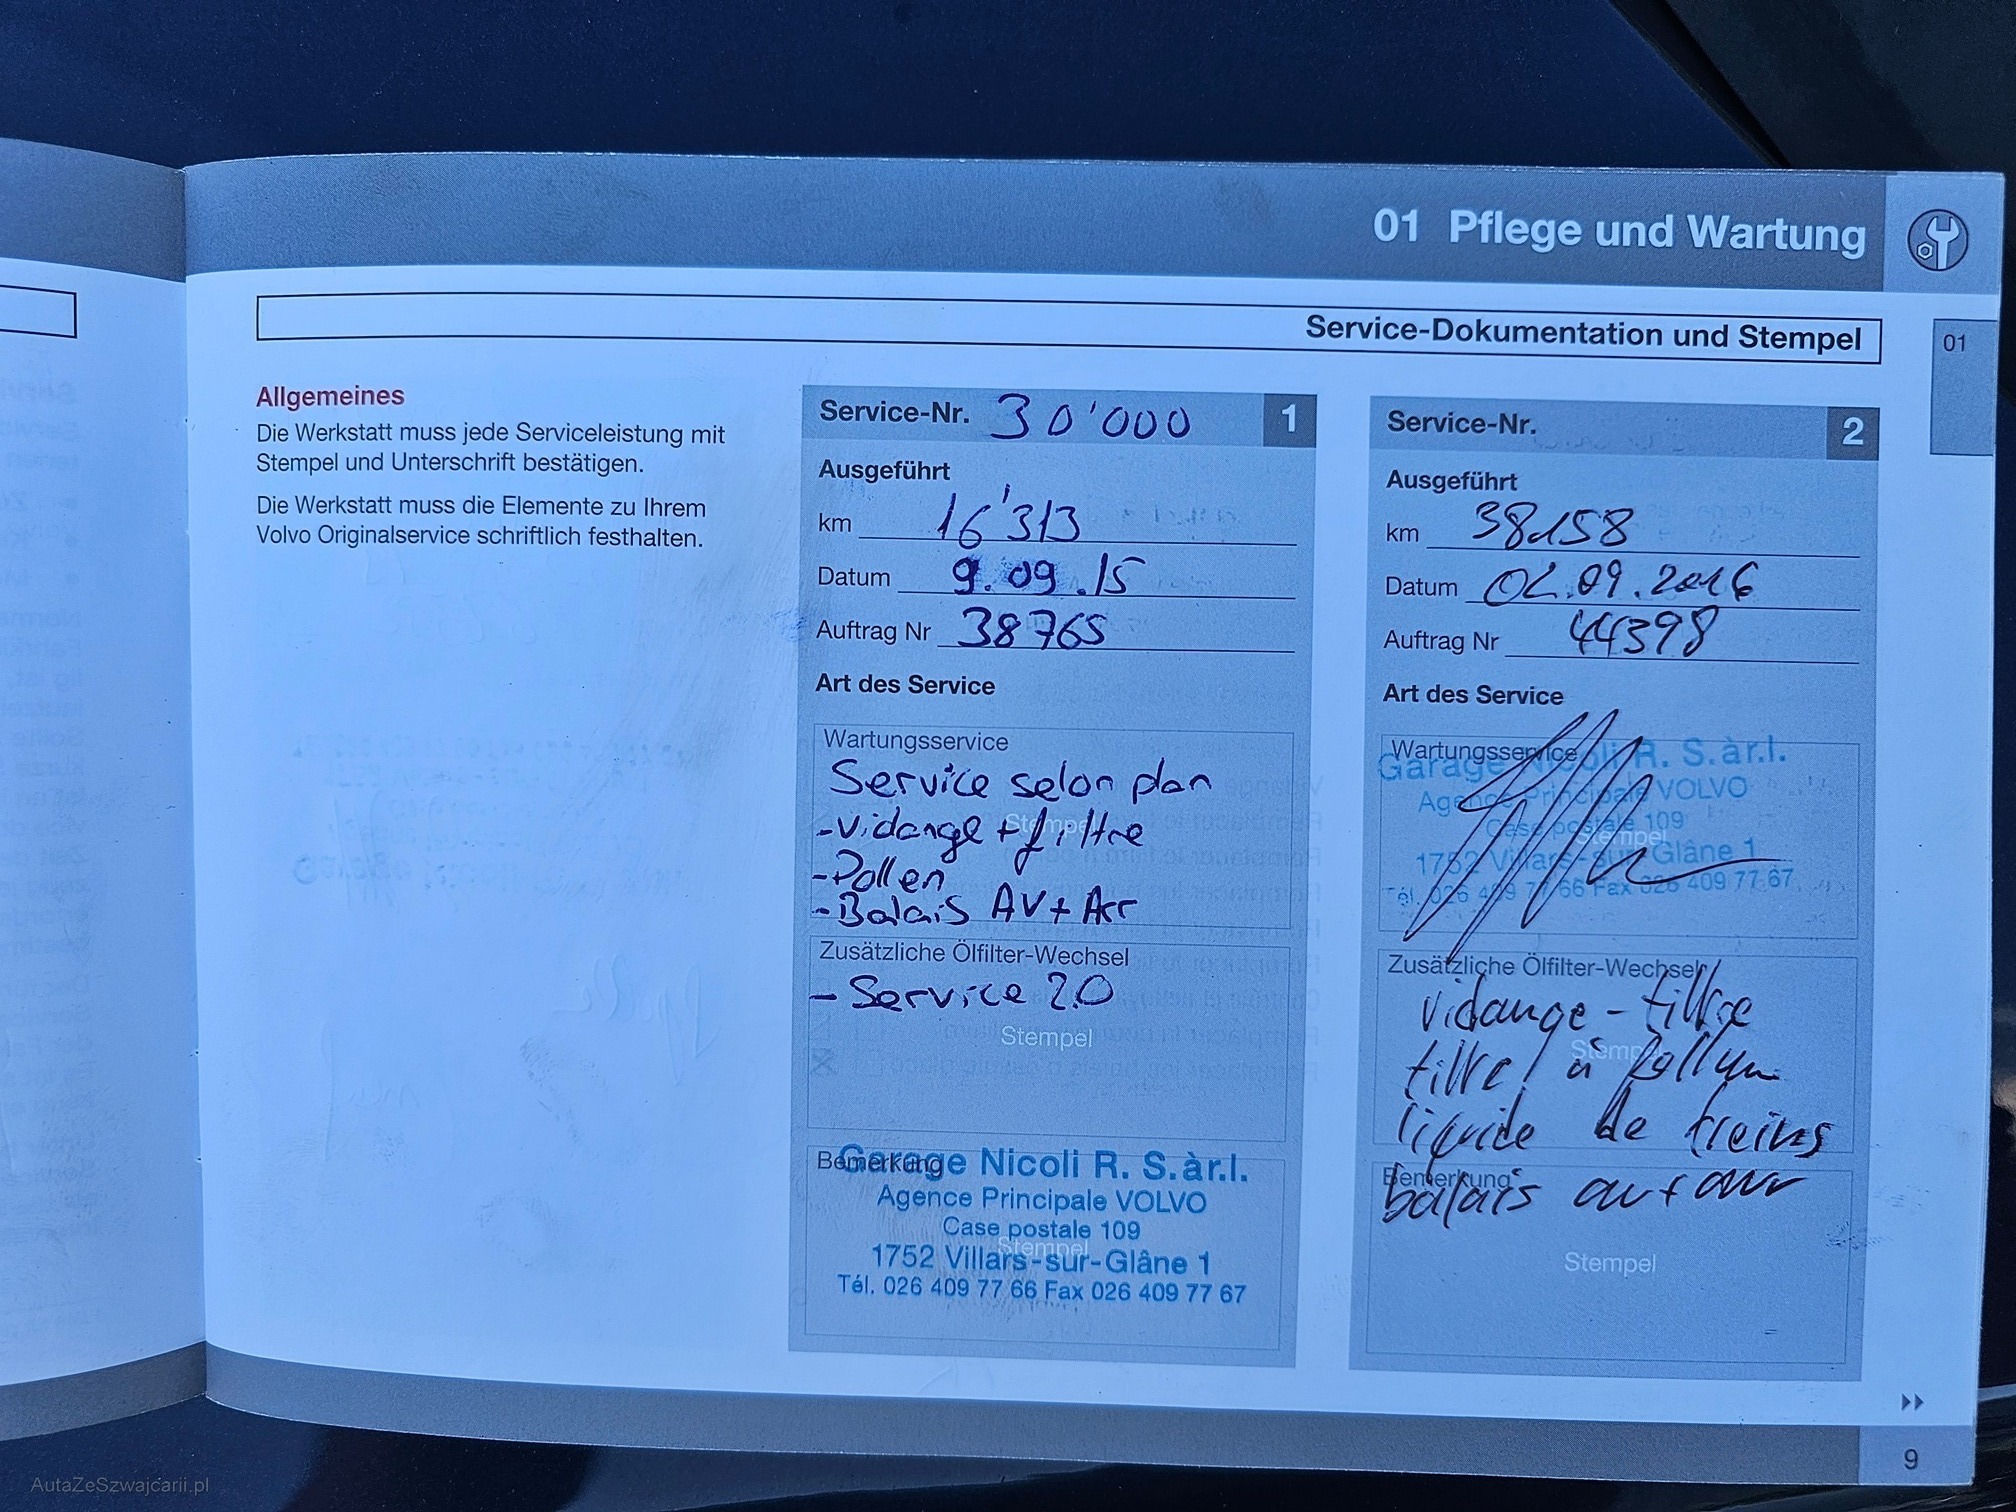 01 Pflege und Wartung
Service-Dokumentation und Stempel
01
Allgemeines
Die Werkstatt muss jede Serviceleistung mit
Stempel und Unterschrift bestätigen.
Die Werkstatt muss die Elemente zu Ihrem
Volvo Originalservice schriftlich festhalten.
Service-Nr. 30'000 1
Ausgeführt
km 16'313
Datum 9.09.15
Auftrag Nr 38765
Art des Service
Wartungsservice
Service selon plan
Stempel
- Vidange + filtre
- Pollen
- Balais AV + Arr
Zusätzliche Ölfilter-Wechsel
- Service 2.0
Stempel
Bemerkung
Garage Nicoli R. S.àr.l.
Agence Principale VOLVO
Case postale 109
Stempel
1752 Villars-sur-Glâne 1
Tél. 026 409 77 66 Fax 026 409 77 67
Service-Nr. 2
Ausgeführt
km 38158
Datum 02.09.2016
Auftrag Nr 44398
Art des Service
Wartungsservice
Garage Nicoli R. S.àr.l.
Agence Principale VOLVO
Case postale 109
Stempel
1752 Villars-sur-Glâne 1
Tél. 026 409 77 66 Fax 026 409 77 67
Zusätzliche Ölfilter-Wechsel
vidange - filtre
Stempel
filtre à pollen
liquide de freins
Bemerkung
balais av + arr
Stempel
9
AutaZeSzwajcarii.pl